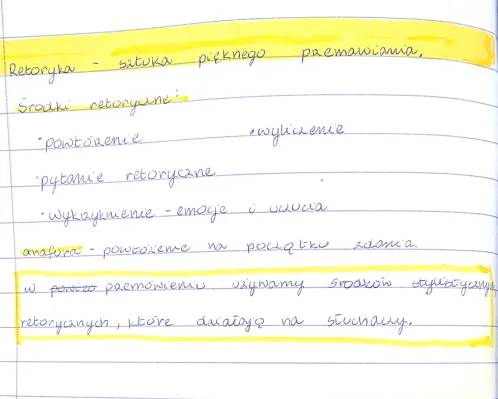 Retoryka - sztuka pięknego przemawiania.
Środki retoryczne:
•powtórzenie •wyliczenie
•pytanie retoryczne
•wykrzyknienie - emocje i uczucia
anafora - powtórzenie na początku zdania.
w przemówieniu używamy środków stylistycznych
retorycznych, które działają na słuchaczy.